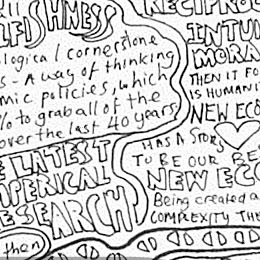 LFISHNESS
ological cornerstone
s - A way of thinking
mic policies, which
% to grab all of the
over the last 40 years
E LATEST
MPERICAL
ESEARCH
then
RECIPROC
INTUI
MORA
THEN IT FO
IS HUMANIT
NEW ECO
HAS A STORY
TO BE OUR BE
NEW ECO
Being created a
COMPLEXITY THE